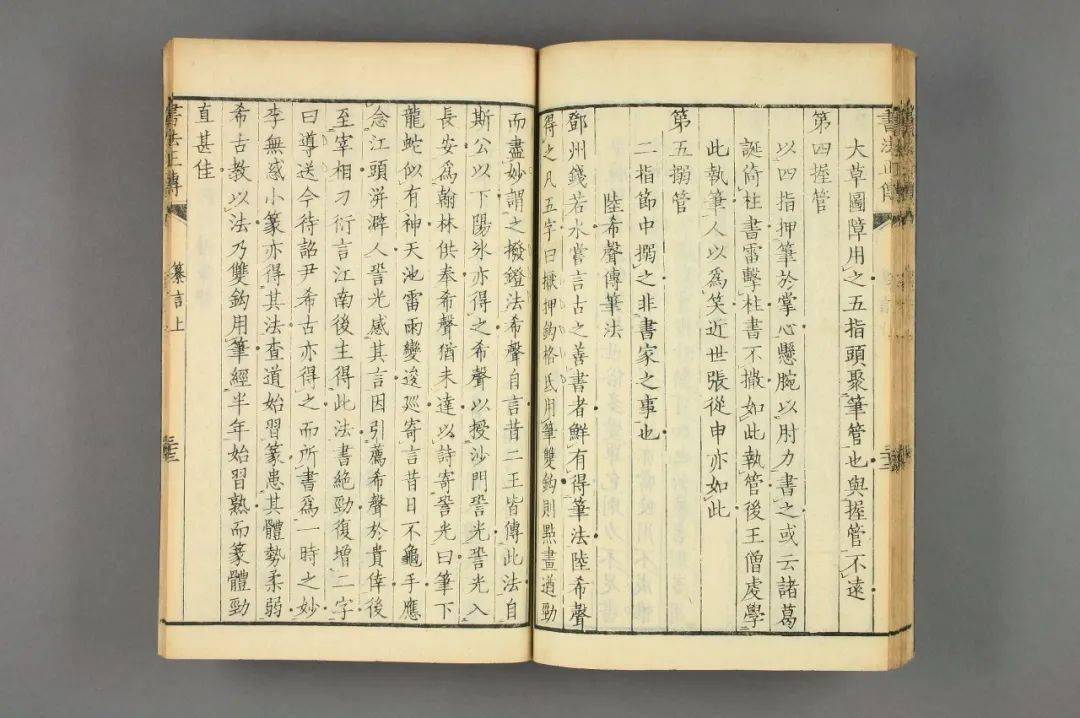 大草圖障用之五指頭聚筆管也與握管不遠
第四握管
以四指押筆於掌心懸腕以肘力書之或云諸葛
誕倚柱書雷擊柱書不撒如此執管後王僧虔學
此執筆人以爲笑近世張從申亦如此
第五搦管
二指節中搦之非書家之事也
陸希聲傳筆法
鄧州錢若水嘗言古之善書者鮮有得筆法陸希聲
得之凡五字曰擫押鈎格抵用筆雙鈎則點畫遒勁
而盡妙謂之撥鐙法希聲自言昔二王皆傳此法自
斯公以下陽氷亦得之希聲以授沙門䛒光䛒光入
長安爲翰林供奉希聲猶未達以詩寄䛒光曰筆下
龍蛇似有神天池雷雨變逡廵寄言昔日不龜手應
念江頭洴澼人䛒光感其言因引薦希聲於貴倖後
至宰相刁衍言江南後主得此法書絶勁復增二字
曰導送今待詔尹希古亦得之而所書爲一時之妙
李無惑小篆亦得其法查道始習篆患其體勢柔弱
希古教以法乃雙鈎用筆經半年始習熟而篆體勁
直甚佳
書法正傳
纂言上
二十三